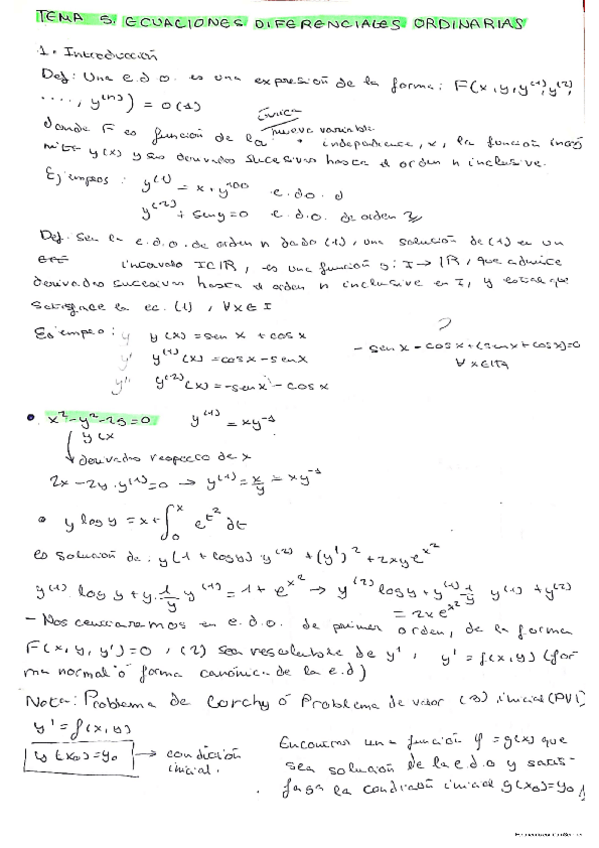 TEMA 5. ECUACIONES DIFERENCIALES ORDINARIAS
1. Introducción
Def: Una e.d.o. es una expresión de la forma: F(x, y, y⁽¹⁾, y⁽²⁾,
...., y⁽ⁿ⁾) = 0 (1)
única
donde F es función de la nueva variable independiente, x, la función incóg
nita y(x) y sus derivadas sucesivas hasta el orden n inclusive.
Ejemplos: y⁽¹⁾ = x + y¹⁰⁰ e.d.o.
y⁽²⁾ + sen y = 0 e.d.o. de orden 2
Def. Sea la e.d.o. de orden n dada (1), una solución de (1) en un
intervalo I⊂ℝ, es una función y: I → ℝ, que admite
derivadas sucesivas hasta el orden n inclusive en I, y
satisface la ec. (1), ∀x∈I
Ejemplo: y y(x) = sen x + cos x
y' y⁽¹⁾(x) = cos x - sen x
y'' y⁽²⁾(x) = -sen x - cos x
?
- sen x - cos x + (sen x + cos x) = 0
∀x∈ℝ
x² - y² - 25 = 0 y⁽¹⁾ = xy⁻¹
y(x
derivados respecto de x
2x - 2y · y⁽¹⁾ = 0 → y⁽¹⁾ = x/y = xy⁻¹
y log y = x + ∫₀ˣ e^(t²) dt
es solución de: y(1 + log y) y⁽²⁾ + (y')² + 2xy e^(x²)
y⁽¹⁾ · log y + y · 1/y y⁽¹⁾ = 1 + e^(x²) → y⁽²⁾ log y + y⁽¹⁾ 1/y y⁽¹⁾ + y⁽²⁾
= 2x e^(x²)
- Nos centraremos en e.d.o. de primer orden, de la forma
F(x, y, y') = 0, (2) sea resoluble de y', y' = f(x, y) (for
ma normal ó forma canónica de la e.d)
Nota: Problema de Cauchy ó Problema de valor (3) inicial (PVI)
y' = f(x, y)
y(x₀) = y₀ → condición
inicial.
Encontrar una función y = g(x) que
sea solución de la e.d.o y satis-
faga la condición inicial g(x₀) = y₀